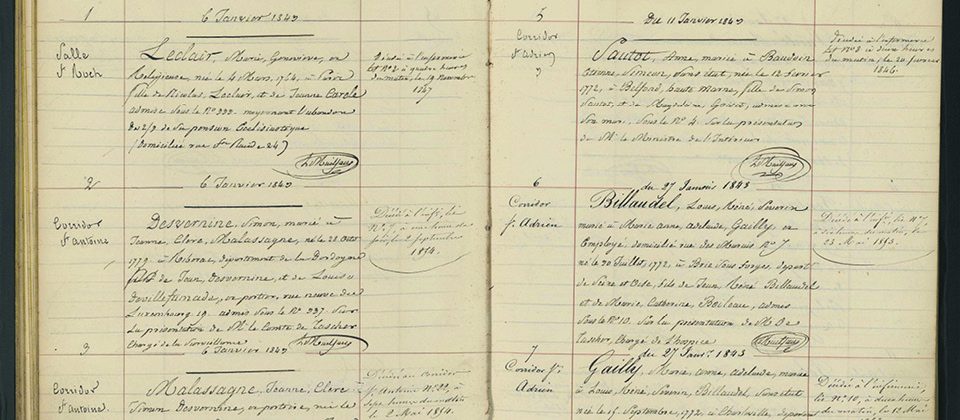 1
6 Janvier 1843
Salle
St Roch
Leclair, Marie, Geneviève, ex
Religieuse, née le 4 Mars, 1764, à Paris
fille de Nicolas, Leclair, et de Jeanne Carole
admise sous le No 222. moyennant l'abandon
des 2/3 de sa pension Ecclésiastique
(Domiciliée rue St 24)
Décédée à l'infirmerie
lit No 2 à quatre heures
du matin, le 19 Novembre
1847
2
6 Janvier 1843
Corridor
St Antoine
Desvernine, Simon, marié à
Jeanne, Clere, Malassagne, né le 28 Octe
1779 à département de la Dordogne
fils de Jean, Desvernine, et de Louise
ex portier, rue neuve de
Luxembourg 19. admis sous le No 227. Sur
la présentation de Mr le Comte de Tascher
Chargé de la Surveillance
Décédé à l'infie, lit
No 7, à heures
septembre
1854.
3
6 Janvier 1843
Corridor
St Antoine
Malassagne, Jeanne, Clere à
Simon Desvernine, ex portier, née le
Décédée au Corridor
St Antoine No 22, à
sept heures du matin
le 2 Mai 1854.
5
Du 11 Janvier 1843
Corridor
St Adrien
Sautot, Anne, mariée à Baudoin
Simeur, sans état, née le 12 Février
1772, à Belfond, haute Marne, fille de Simon
Sautot, et de Magdelaine admise avec
son mari. Sous le No 4. Sur la présentation
de Mr le Ministre de l'Intérieur
Décédée à l'infirmerie
lit No 8 à deux heures
du matin, le 20 février
1846.
6
du 27 Janvier 1843
Corridor
St Adrien
Billaudel, Louis, Réné, Séverin
marié à Marie anne, adelaide, Gailly, ex
Employé, domicilié rue des Marais No 7
né le 30 Juillet, 1772, à Brie sous forges, départt
de Seine et Oise, fils de Jean Réné Billaudel
et de Marie, Catherine, Boileau, admis
Sous le No 10. Sur la présentation de M De
Tascher, Chargé de l'hospice
Décédé à l'infie, lit No 7,
à heures du matin, le
23 Mai 1853.
7
du 27 Janvr 1843
Corridor St
Adrien
Gailly, Marie, anne, adelaide, mariée
à Louis, Réné, Séverin, Billaudel, sans état
née le 15. Septembre, 1772, à Charleville, départt
Décédée à l'infirmerie,
lit No 10, à deux heures
du matin, le